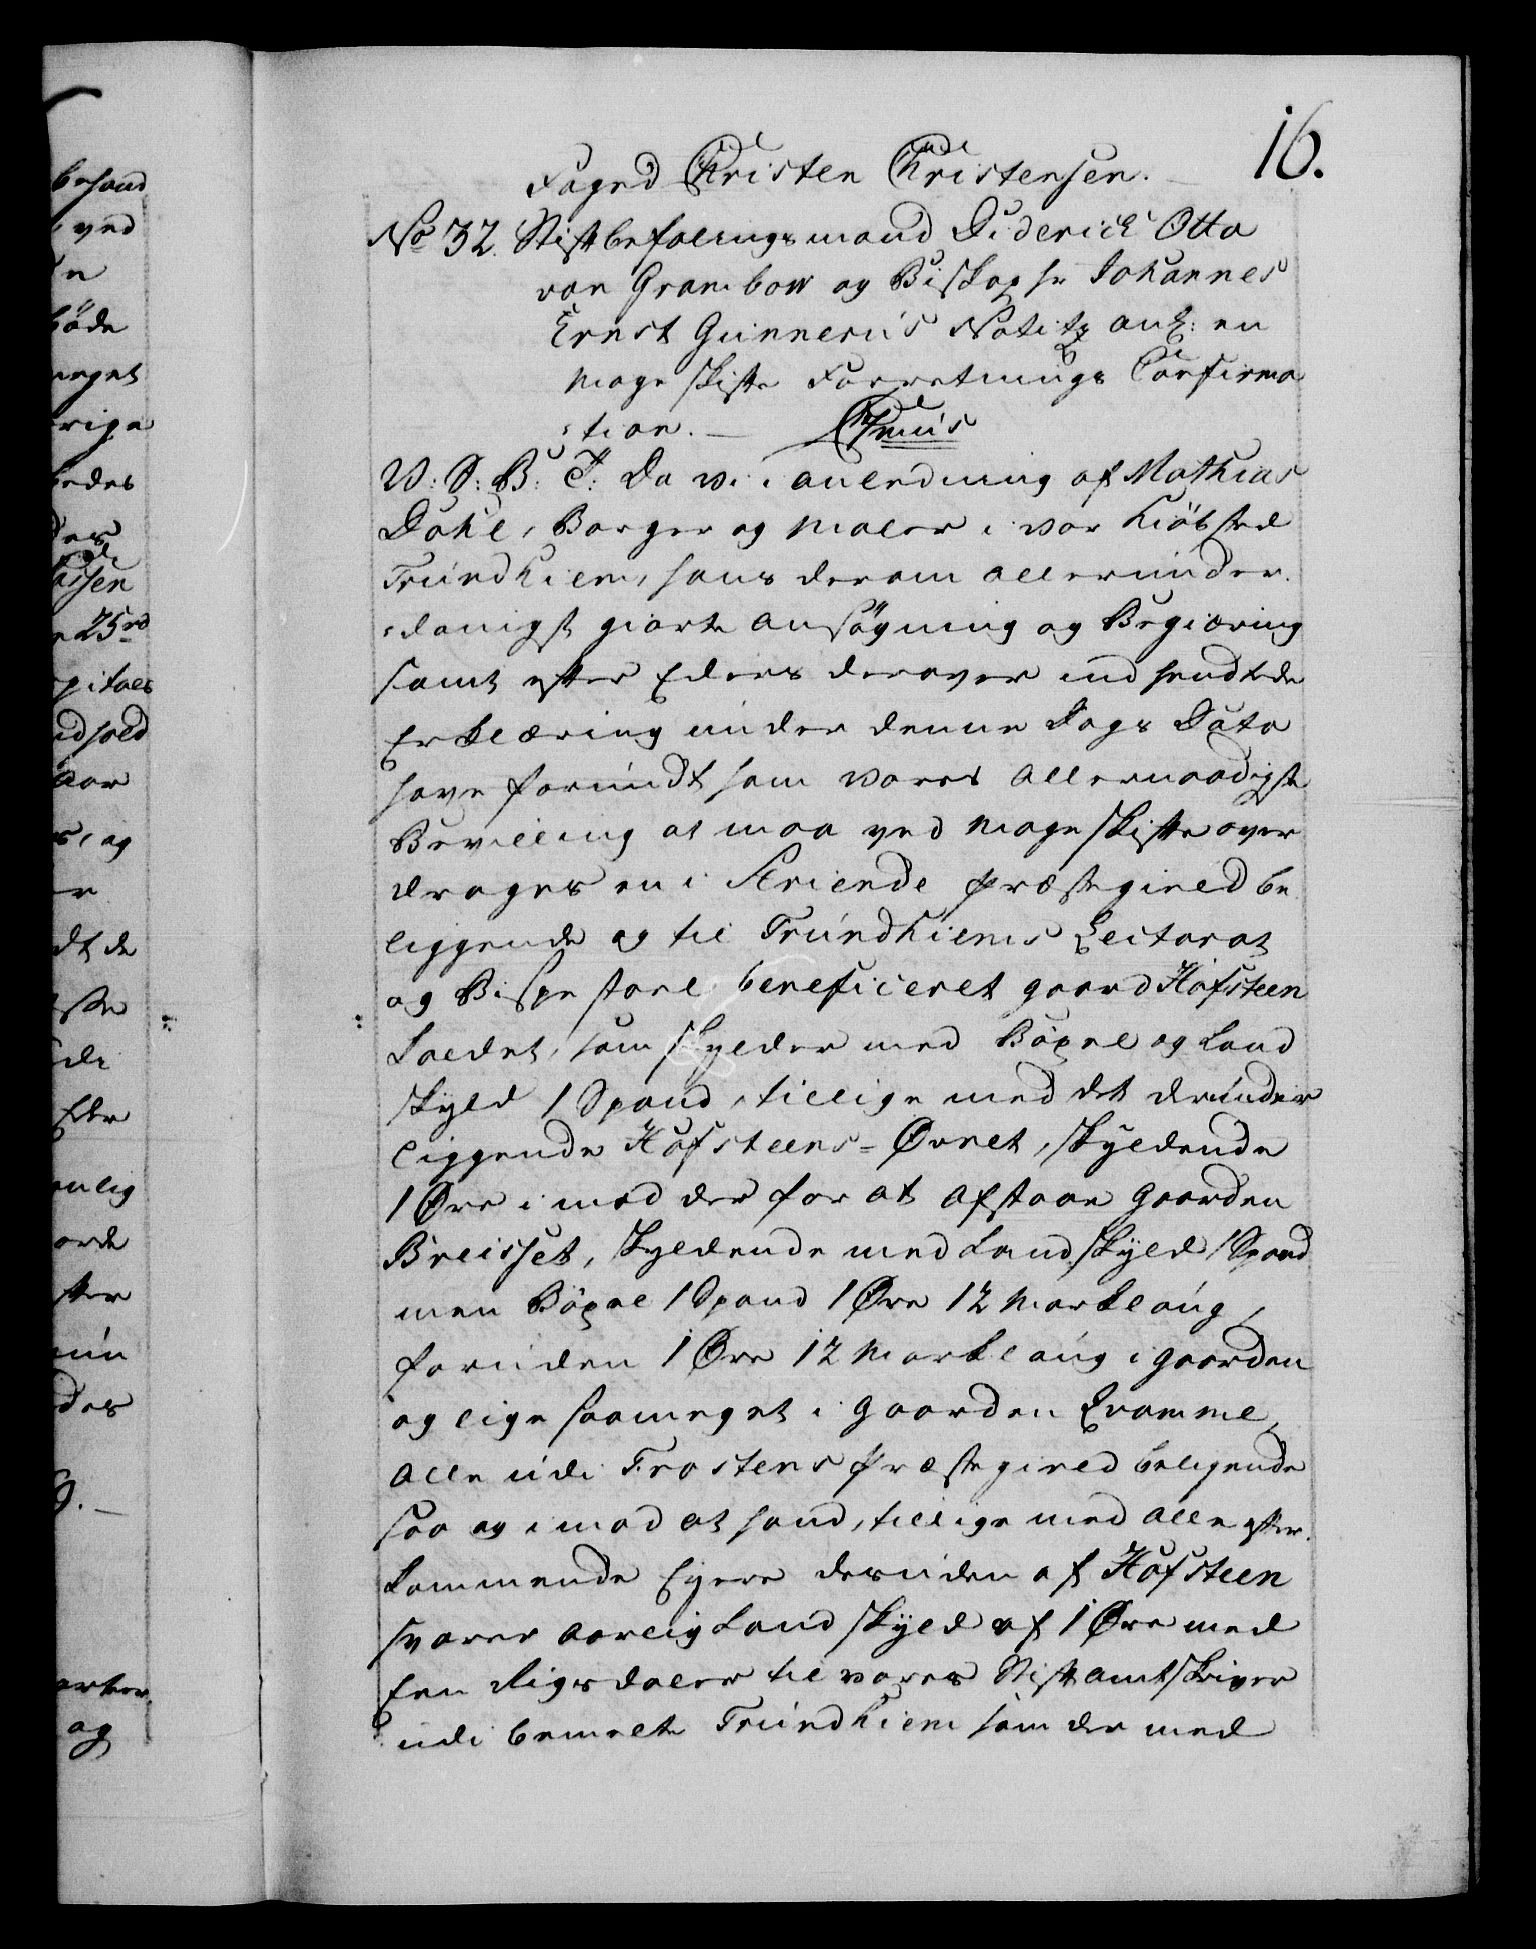 16.
Foged Christen Christensen.
No 32. Stiftbefalingsmand Diderich Otto
von Grambow og Biskop hr Johannes
Ernst Gunnerus Notitz ang: en
Mageskifte Forretnings Confirma
:tion. —
V: S: B: T: Da Vi i anledning af Mathias
Dahl, Borger og Maler i vor Kiöbsted
Trundhiem, hans derom allerunder
:danigst giorte Ansøgning og Begiæring
samt efter Eders derover indsendte
Erklæring under denne Dags Dato
have forundt ham vores allernaadigste
Bevilling at maa ved Mageskifte over
drages en i Størende Præstegield be
liggende og til Trundhiems Lectorat
og Bispestoel beneficeret gaard Hofsteen
kaldet, som skylder med Böxel og Land
skyld 1 Spand, tillige med det derunder
liggende Hofsteens-Øvret, skyldende
1 Øre imod derfor at afstaae Gaarden
Breisset, skyldende med Landskyld 1 Spand
men Böxel 1 Spand 1 Øre 12 Marklaug,
foruden 1 Øre 12 Marklaug i gaarden
og lige saameget i Gaarden Qvamme,
alle udi Frostens Præstegield beligende
saa og imod at hand, tillige med alle efter
kommende Eyere desuden af Hofsteen
svarer aarlig Landskyld af 1 Øre med
Een Rigsdaler til vores Stiftamtskriver
udi bemelte Trundhiem som der med